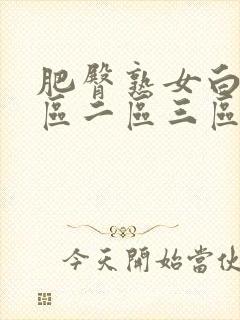 肥臀熟女白
區二區三區
今天開始當伙